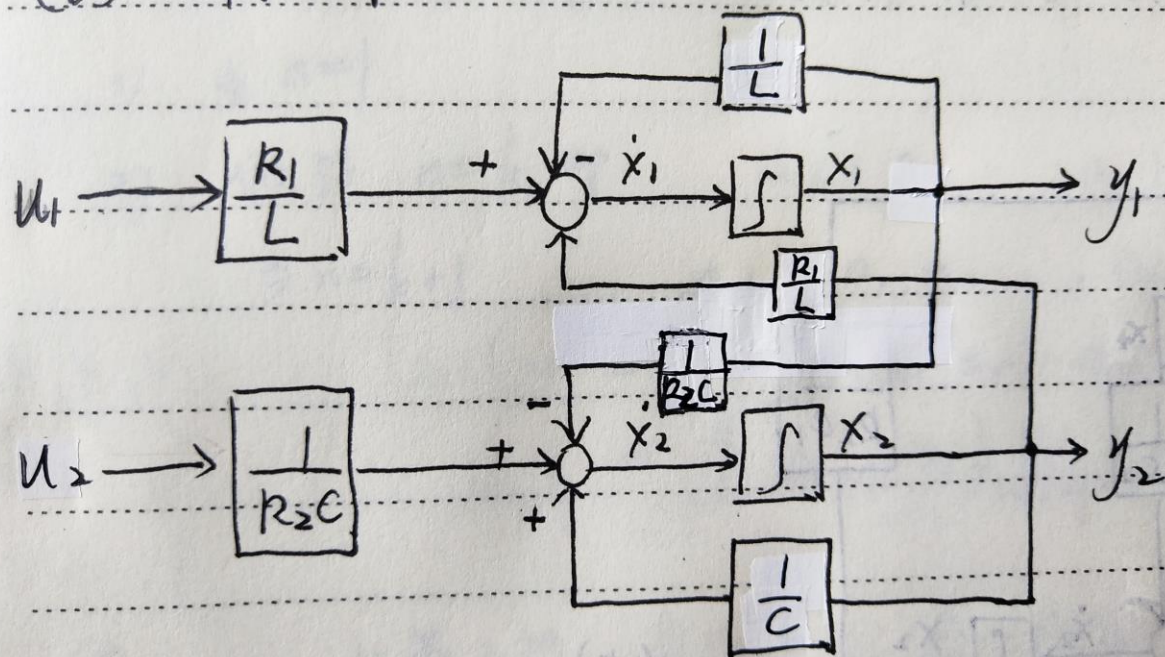 1/L
u₁ R₁/L + - ẋ₁ ∫ x₁ y₁
R₁/L
1/R₂C
-
u₂ 1/R₂C + ẋ₂ ∫ x₂ y₂
+
1/C